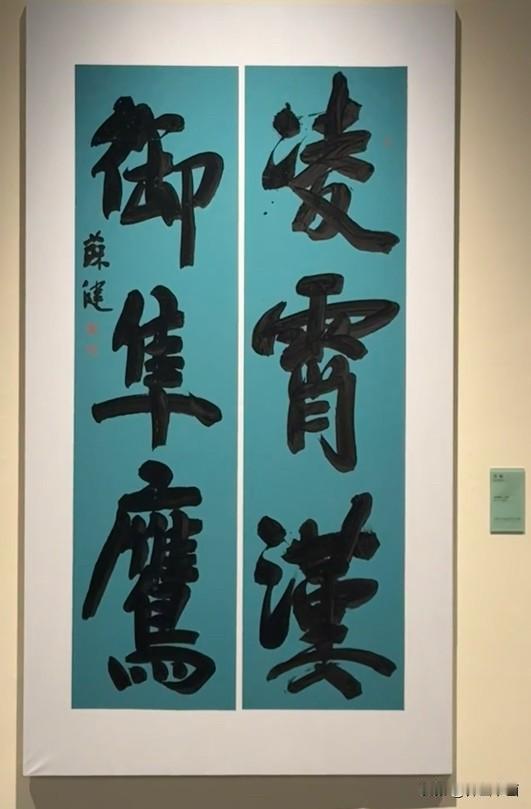 凌霄漢
御隼鷹
蘇健